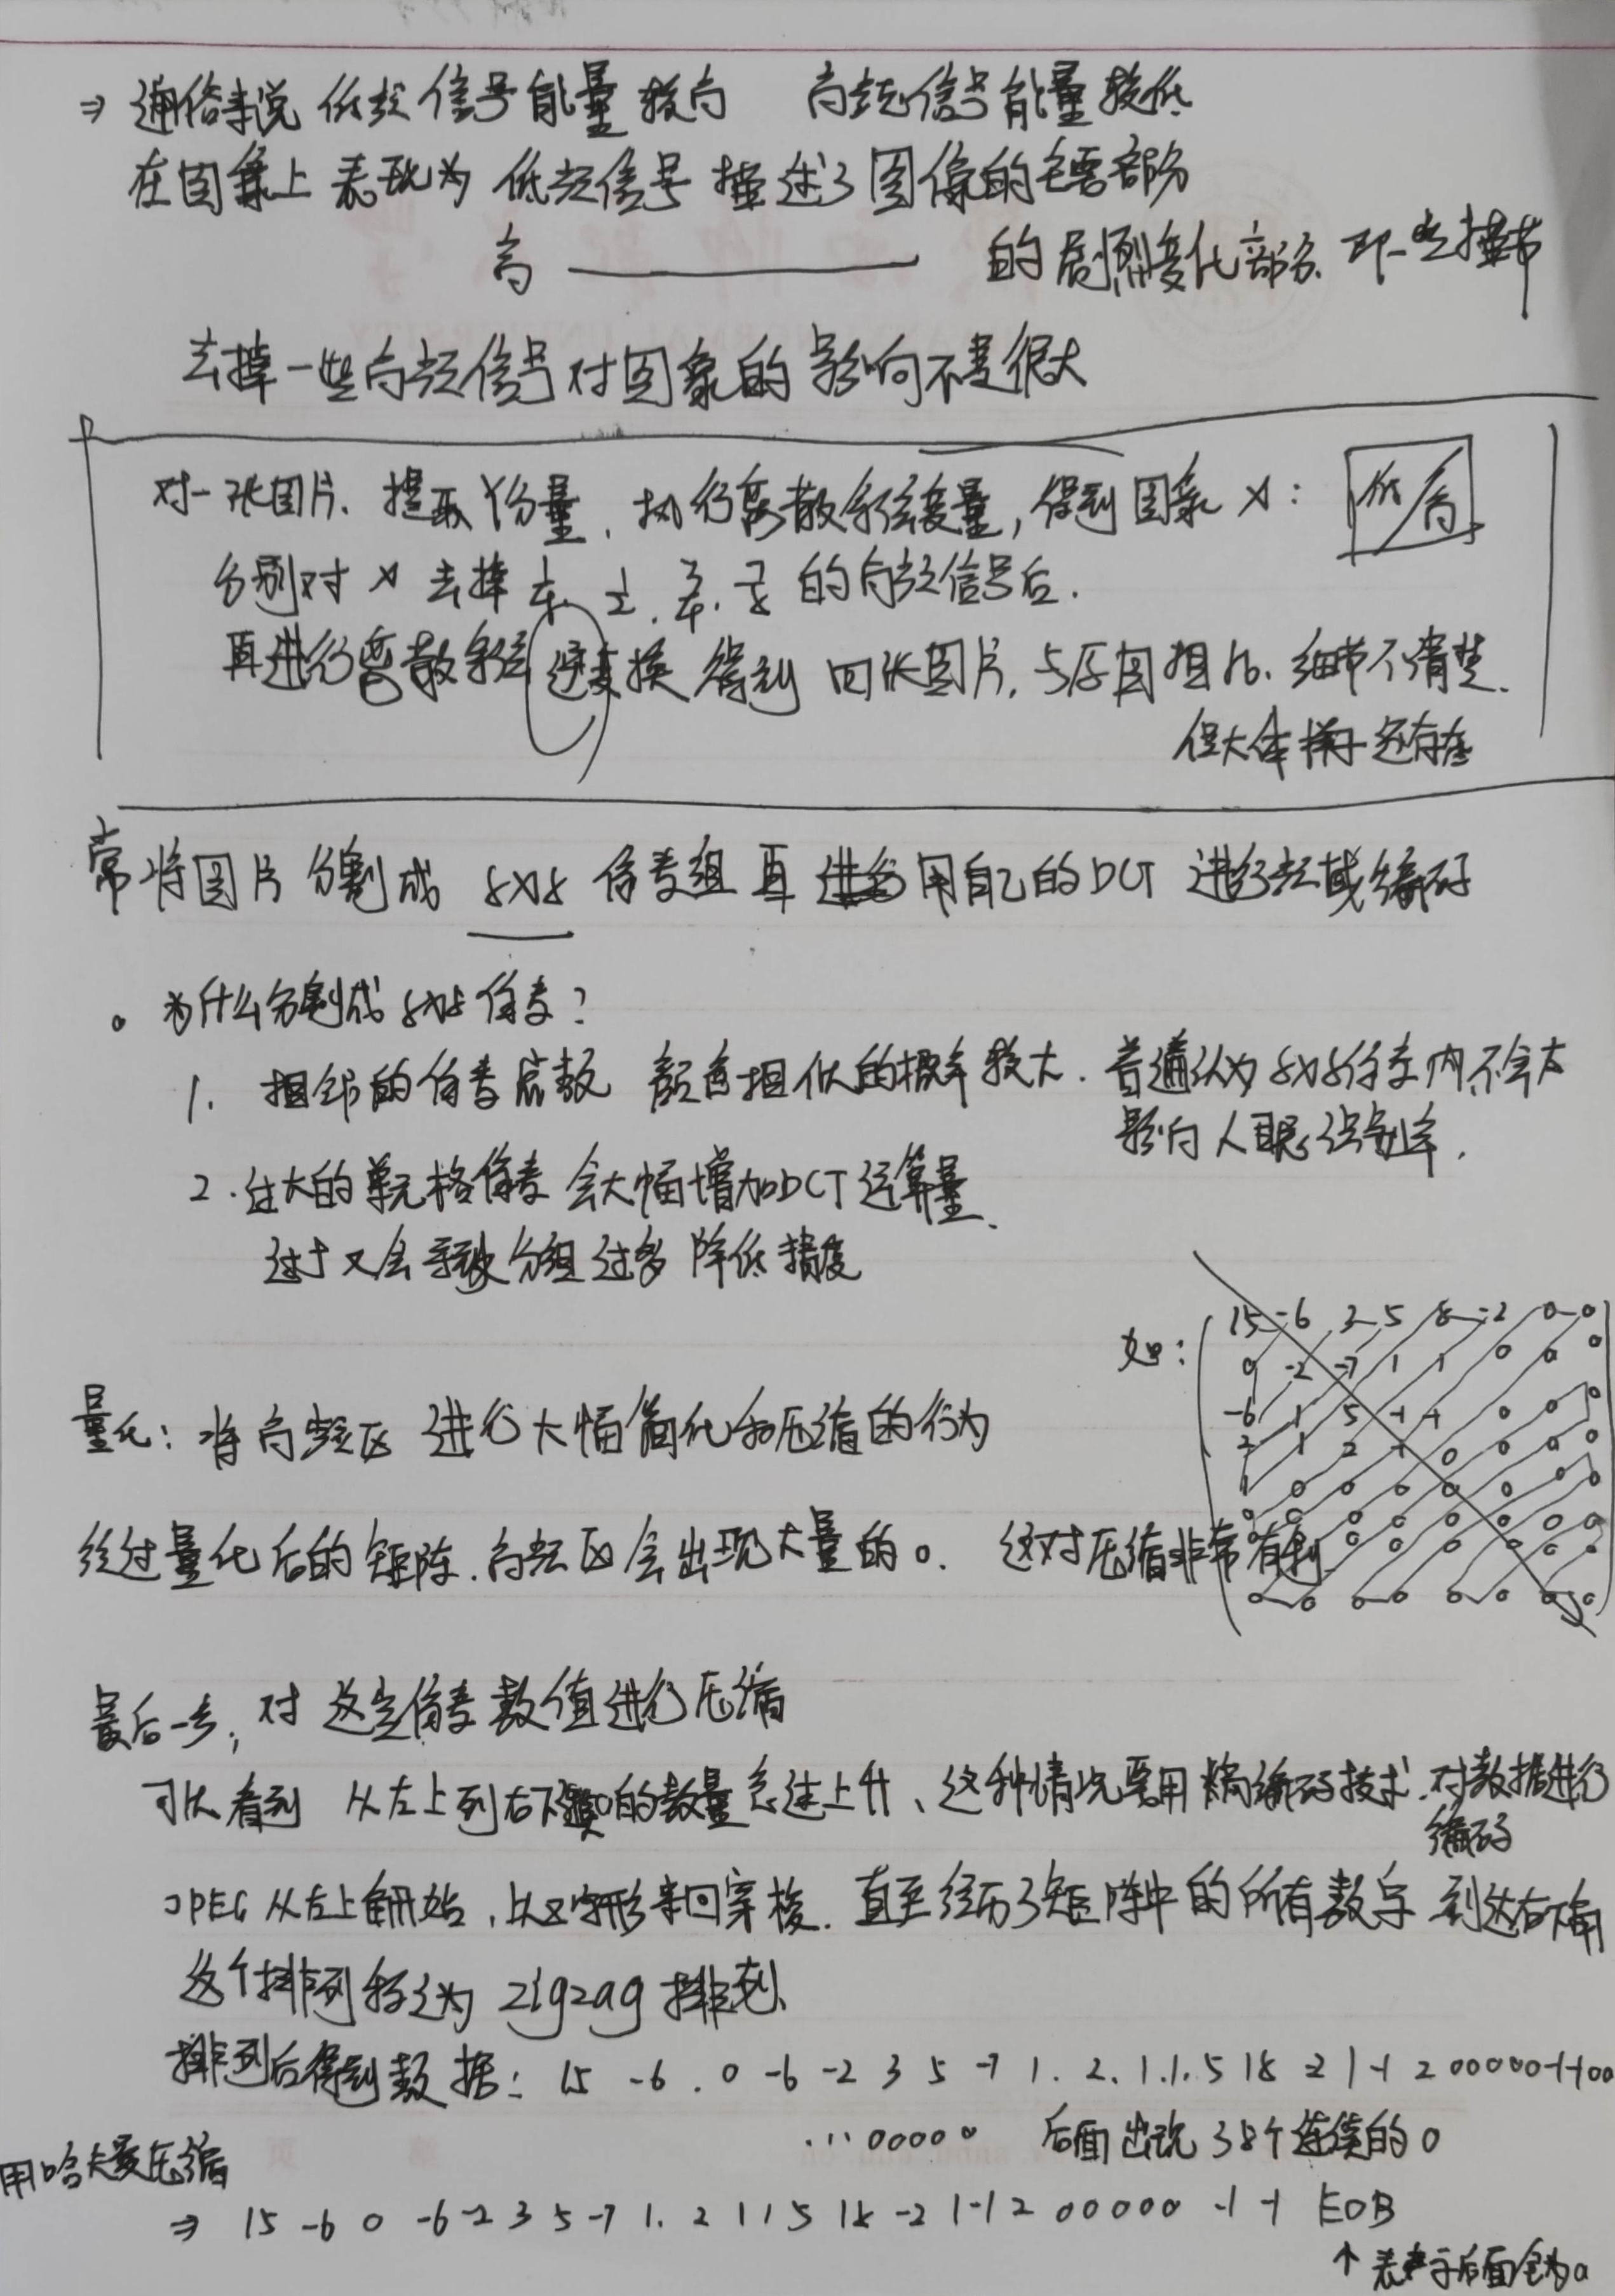 ⇒ 通俗来说 低频信号能量较高 高频信号能量较低
在图象上表现为 低频信号描述了图像的主要部分
高 ———— 的剧烈变化部分. 即一些细节
去掉一些高频信号对图象的影响不是很大
对一张图片. 提取Y份量, 执行离散余弦变量, 得到图象 X: 低/高
分别对 X 去掉 1/4. 1/2. 3/4. 7/8 的高频信号后.
再进行离散余弦逆变换 得到 四张图片, 与原图相比. 细节不清楚.
但大体样子还存在
常将图片分割成 8x8 像素组再 用自己的DCT 进行频域编码
。为什么分割成 8x8 像素?
1. 相邻的像素点数 颜色相似的概率较大. 普遍认为 8x8像素内不会太
影响人眼识别率.
2. 过大的单元格像素 会大幅增加DCT运算量.
过于又会导致分组过多 降低精度
如: 15 -6 3 5 8 -2 0 0
0 -2 -7 1 1 0 0 0
-6 1 5 -1 -1 0 0 0
2 1 2 -1 0 0 0 0
1 0 0 0 0 0 0 0
0 0 0 0 0 0 0 0
0 0 0 0 0 0
0 0 0 0 0 0 0 0
量化: 将高频区 进行大幅简化和压缩的行为
经过量化后的矩阵. 高频区会出现大量的 0. 这对压缩非常有利
最后一步, 对这些像素数值进行压缩
可以看到 从左上到右下 0的数量急速上升、这种情况要用熵编码技术. 对数据进行
编码
JPEG 从左上角开始, 以Z字形来回穿梭. 直至经历了矩阵中的所有数字 到达右下角
这个排列称之为 zigzag 排列.
排列后得到数据: 15 -6 . 0 -6 -2 3 5 -7 1. 2. 1.1.5 1 8 -2 1 -1 2 00000 -1-1 00
...00000 后面出现 38个连续的 0
用哈夫曼压缩
⇒ 15 -6 0 -6 -2 3 5 -7 1. 2 1 1 5 1 8 -2 1 -1 2 00000 -1 -1 EOB
↑ 表示后面全为0